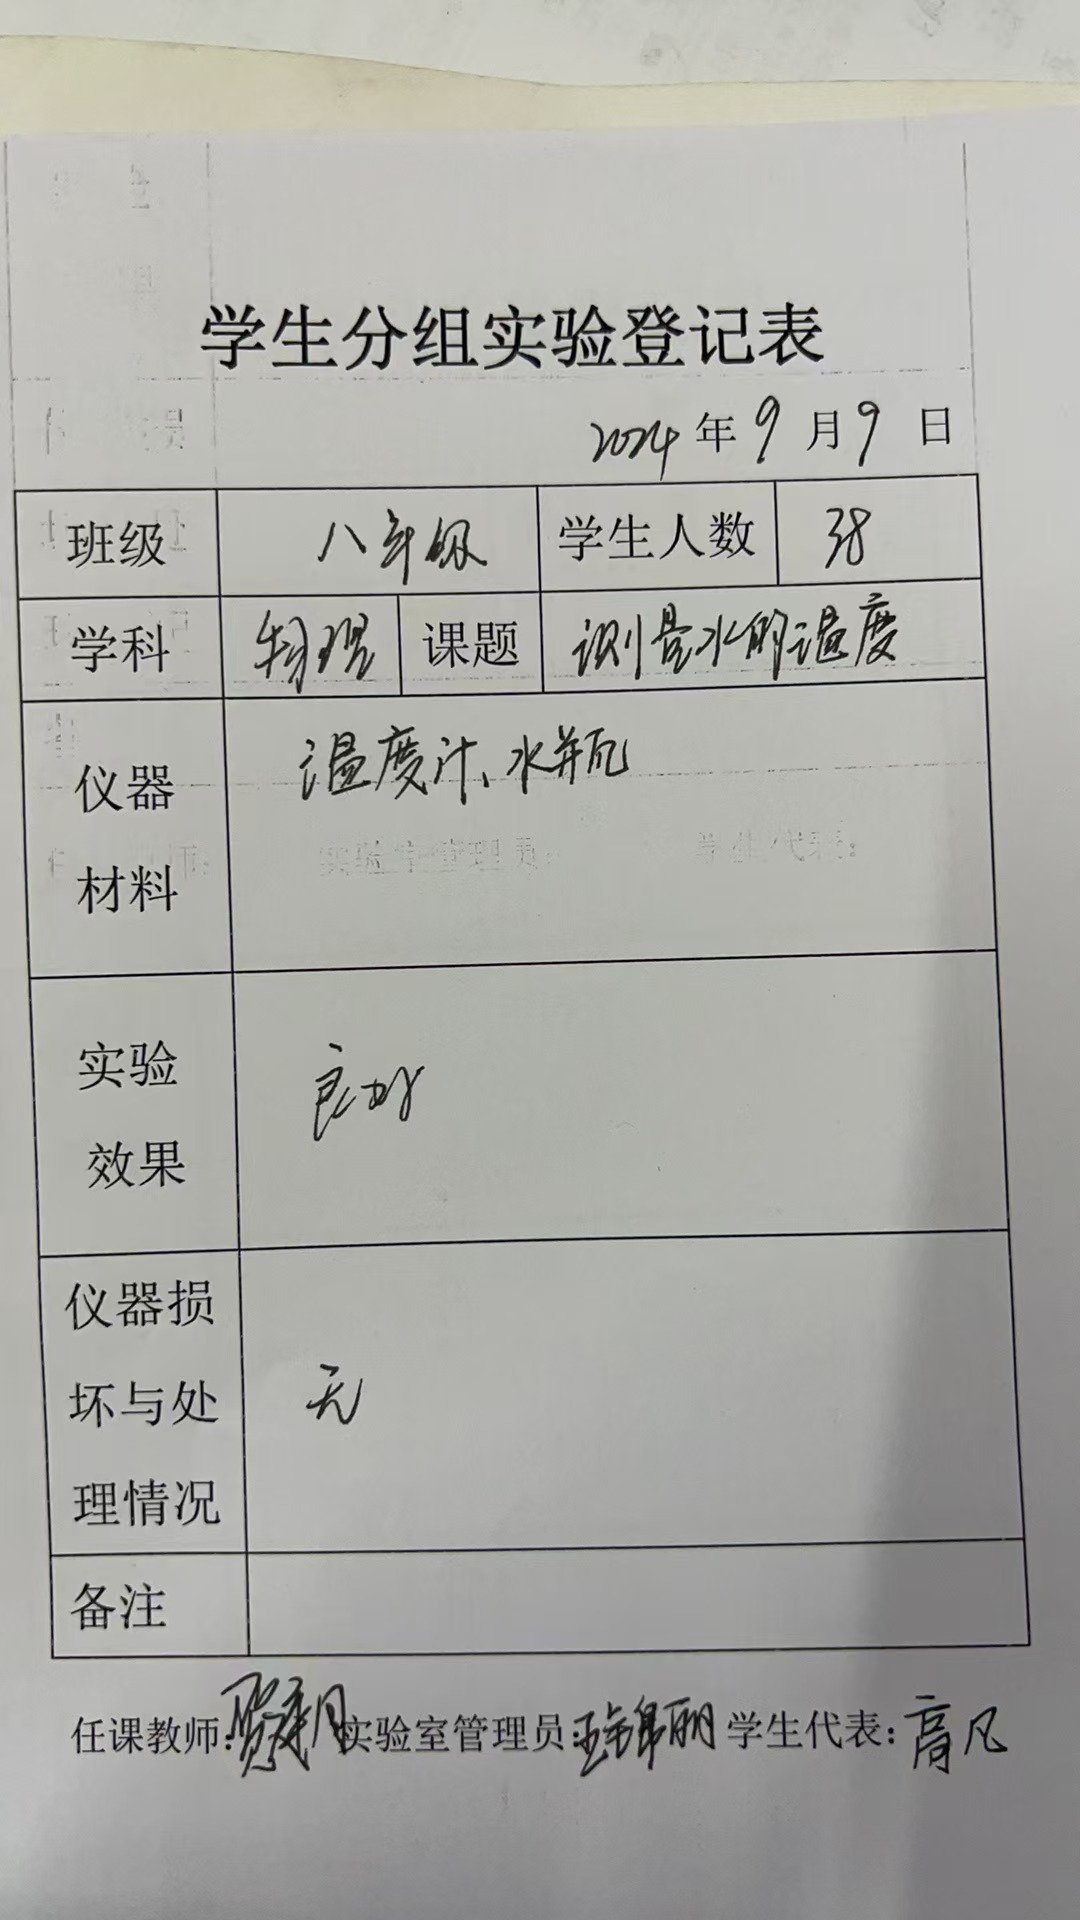 学生分组实验登记表
2024年9月9日
班级 八年级 学生人数 38
学科 物理 课题 测量水的温度
仪器材料 温度计、水瓶
实验效果 良好
仪器损坏与处理情况 无
备注
任课教师: 实验室管理员: 王锦丽 学生代表: 高凡